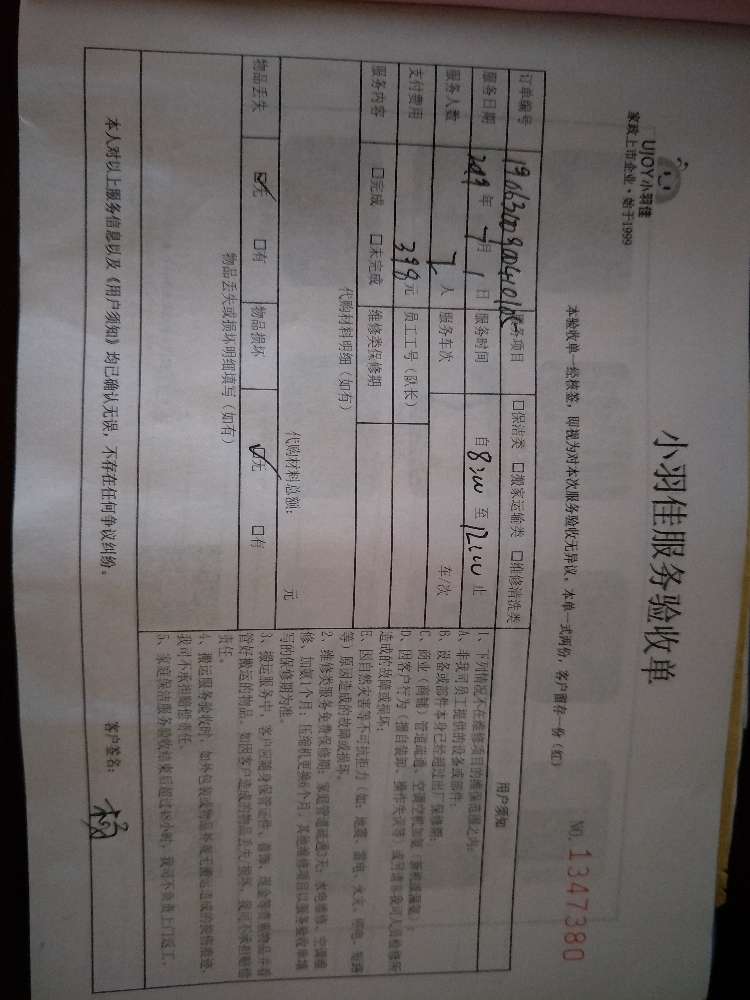 UJOY小羽佳
家政上市企业·始于1999
小羽佳服务验收单
本验收单一经核签，即视为对本次服务验收无异议。本单一式两份，客户留存一份（红）
NO. 1347380
订单编号
服务项目 □保洁类 □搬家运输类 □维修清洗类
服务日期 2019年 7月 1日 服务时间 自 8:00 至 12:00 止
服务人数 人 服务车次 车/次
支付费用 398元 员工工号（队长）
服务内容 □完成 □未完成 维修类保修期
代购材料明细（如有）
代购材料总额： 元
物品丢失 ☑无 □有 物品损坏 ☑无 □有
物品丢失或损坏明细填写（如有）
用户须知
1、下列情况不在维修项目的维保范围之内：
A、非我司员工提供的设备或部件；
B、设备或部件本身已经超过出厂保修期；
C、商业（商铺）管道疏通、空调空机加氨、新机漏漏氨）；
D、因客户行为（擅自装卸、操作失误等）或另请非我司人员检修所
造成的故障或损坏；
E、因自然灾害等不可抗拒力（如：地震、雷电、水灾、弱电、短路
等）原因造成的故障或损坏。
2、维修类服务免费保修期：家庭管道疏通3天，水电维修、空调维
修、加氨1个月；压缩机更换6个月，其他维修项目以服务验收单填
写的保修期为准。
3、搬运服务中，客户应随身保管证件、首饰、现金等贵重物品并看
管好搬运的物品。如因客户造成的物品丢失、损坏，我司不承担赔偿
责任。
4、搬运服务验收时，如外包装或物品外观无搬运造成的损伤痕迹，
我司不承担赔偿责任。
5、家庭保洁服务验收结束后超过48小时，我司不负责上门返工。
本人对以上服务信息以及《用户须知》均已确认无误，不存在任何争议纠纷。 客户签名： 杨